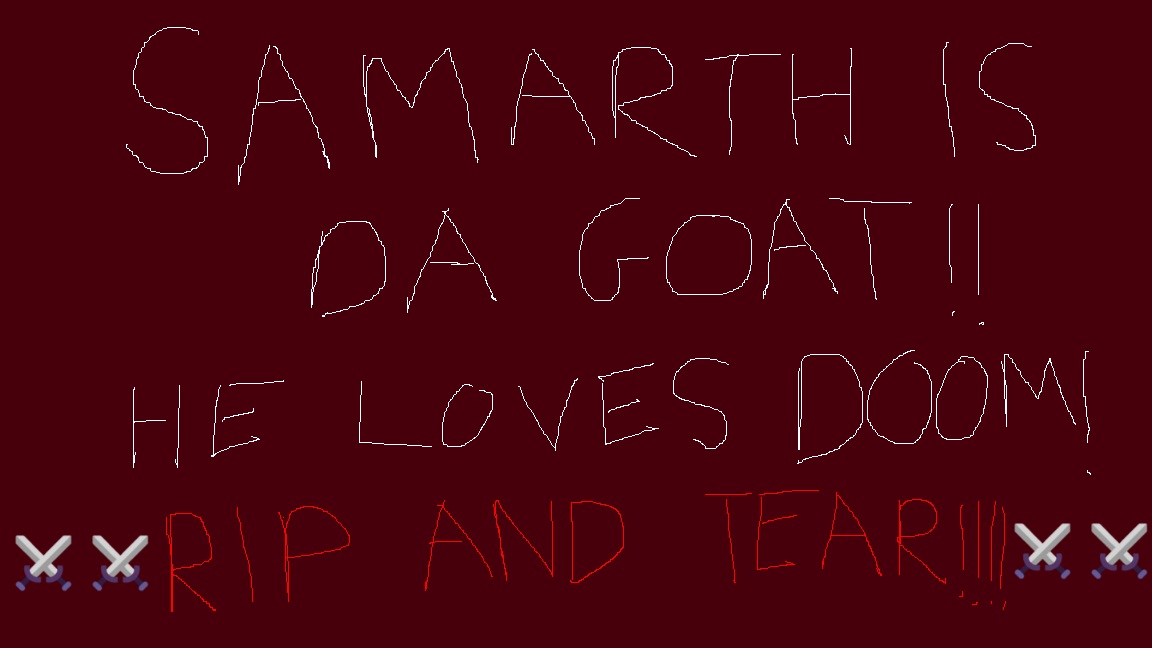 SAMARTH IS
DA GOAT!!
HE LOVES DOOM!
⚔️⚔️RIP AND TEAR!!!!⚔️⚔️